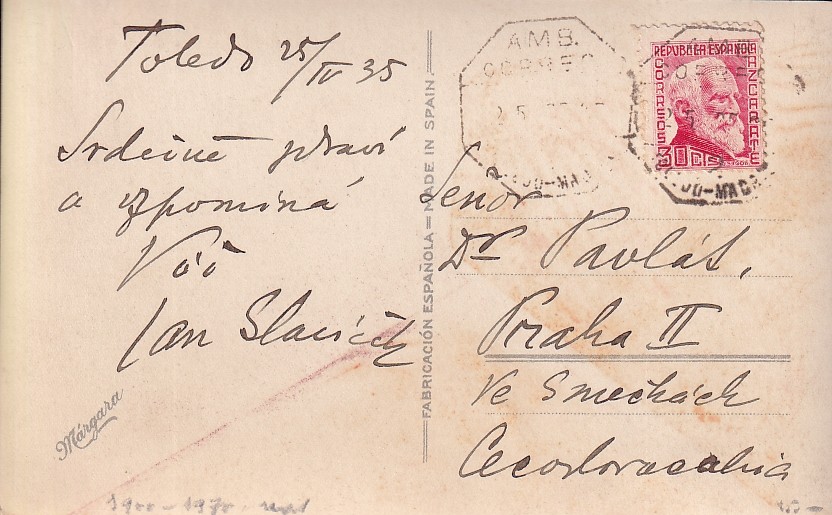 Toledo 25/IV 35
Srdečně zdraví
a vzpomíná
Váš
Jan Slavíček
Márgara
FABRICACIÓN ESPAÑOLA = MADE IN SPAIN.
AMB.
CORREO
REPUBLICA ESPAÑOLA
CORREOS
AZCARATE
30 CTS
Senor
Dr Pavlát,
Praha II
Ve Smečkách
Cecoslovaquia
1900-1970